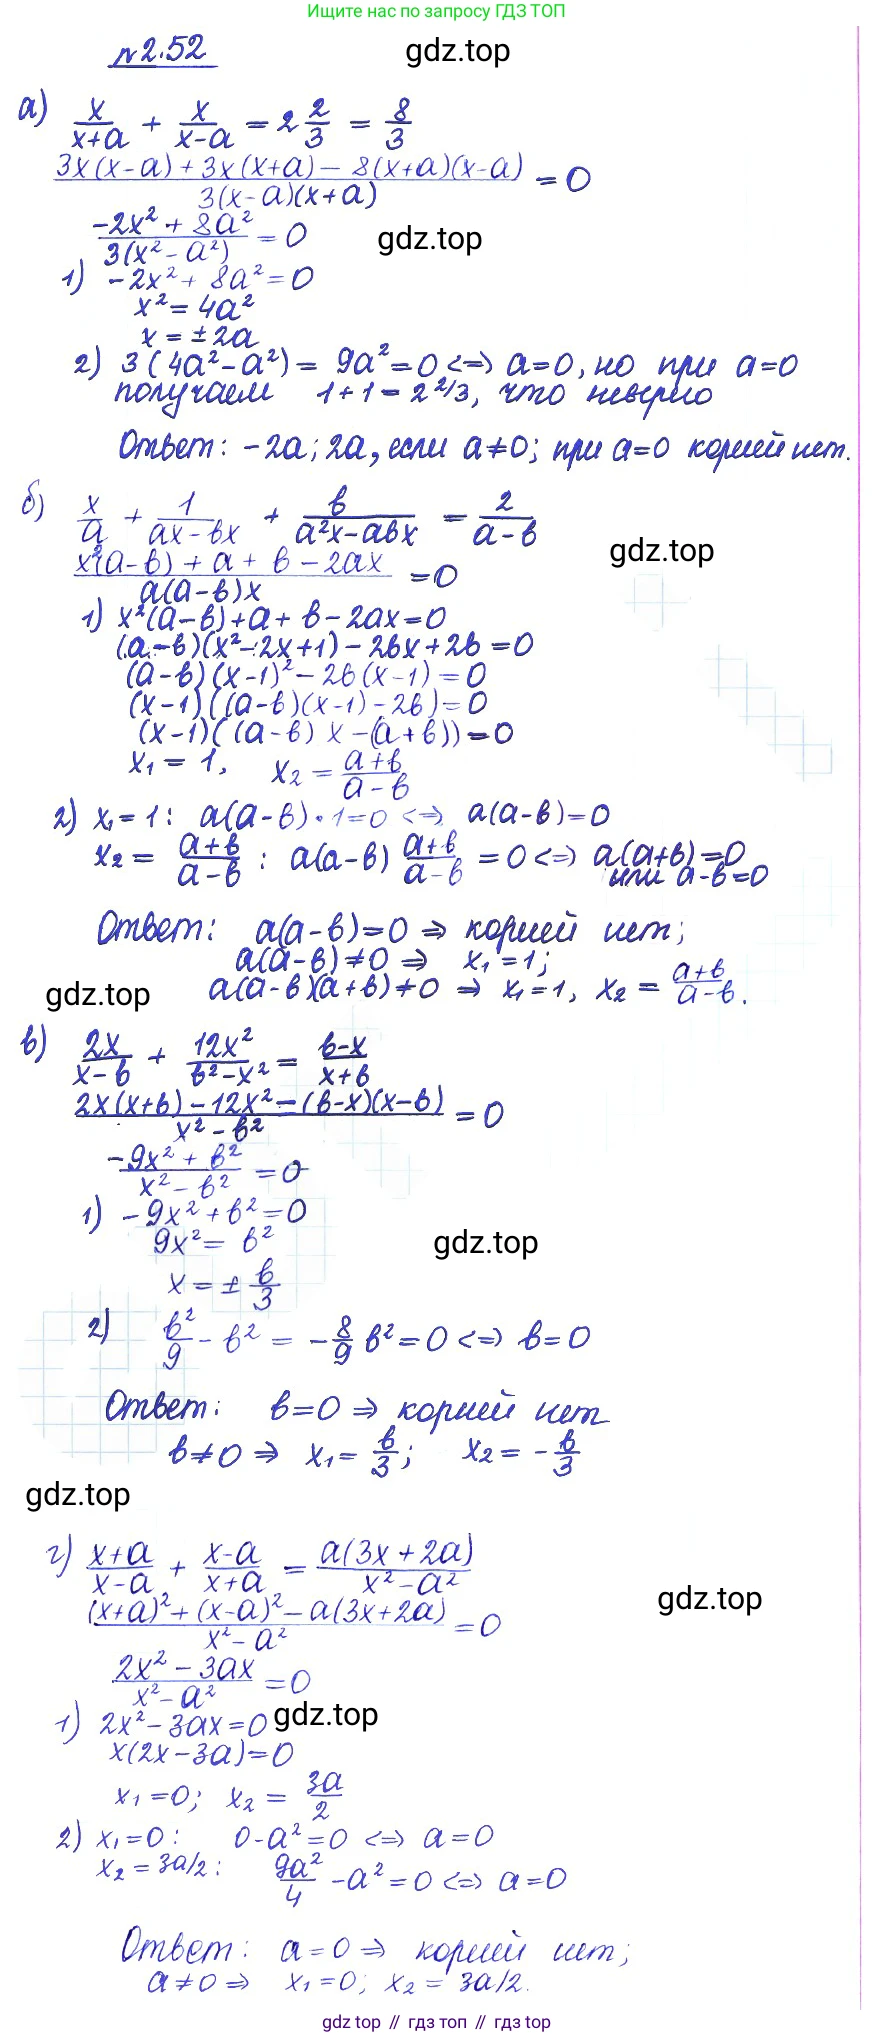 Ищите нас по запросу ГДЗ ТОП
№2.52
gdz.top
а) x/(x+a) + x/(x-a) = 2 2/3 = 8/3
(3x(x-a)+3x(x+a)-8(x+a)(x-a))/(3(x-a)(x+a)) = 0
(-2x²+8a²)/(3(x²-a²)) = 0
gdz.top
1) -2x²+8a²=0
x²=4a²
x=±2a
2) 3(4a²-a²)= 9a²=0 <=> a=0, но при a=0
получаем 1+1=2 2/3, что неверно
Ответ: -2a; 2a, если a≠0; при a=0 корней нет.
б) x/a + 1/(ax-bx) + b/(a²x-abx) = 2/(a-b)
gdz.top
(x²(a-b)+a+b-2ax)/(a(a-b)x) =0
1) x²(a-b)+a+b-2ax=0
(a-b)(x²-2x+1)-2bx+2b=0
(a-b)(x-1)²-2b(x-1)=0
(x-1)((a-b)(x-1)-2b)=0
(x-1)((a-b)x-(a+b))=0
x₁=1, x₂=(a+b)/(a-b)
2) x₁=1: a(a-b)·1=0 <=> a(a-b)=0
x₂= (a+b)/(a-b) : a(a-b) (a+b)/(a-b) =0 <=> a(a+b)=0
или a-b=0
Ответ: a(a-b)=0 => корней нет;
a(a-b)≠0 => x₁=1;
gdz.top
a(a-b)(a+b)≠0 => x₁=1, x₂ = (a+b)/(a-b).
в) 2x/(x-b) + 12x²/(b²-x²) = (b-x)/(x+b)
(2x(x+b)-12x²-(b-x)(x-b))/(x²-b²) = 0
(-9x²+b²)/(x²-b²) =0
1) -9x²+b²=0
9x²= b²
gdz.top
x=± b/3
2) b²/9 - b² = -8/9 b²=0 <=> b=0
Ответ: b=0 => корней нет
b≠0 => x₁= b/3; x₂= -b/3
gdz.top
г) (x+a)/(x-a) + (x-a)/(x+a) = a(3x+2a)/(x²-a²)
gdz.top
((x+a)²+(x-a)²-a(3x+2a))/(x²-a²) =0
(2x²-3ax)/(x²-a²) =0
1) 2x²-3ax=0
gdz.top
x(2x-3a)=0
x₁=0; x₂ = 3a/2
2) x₁=0: 0-a²=0 <=> a=0
x₂=3a/2: 9a²/4 -a²=0 <=> a=0
Ответ: a=0 => корней нет;
a≠0 => x₁=0; x₂= 3a/2.
gdz.top // гдз.топ // гдз.top